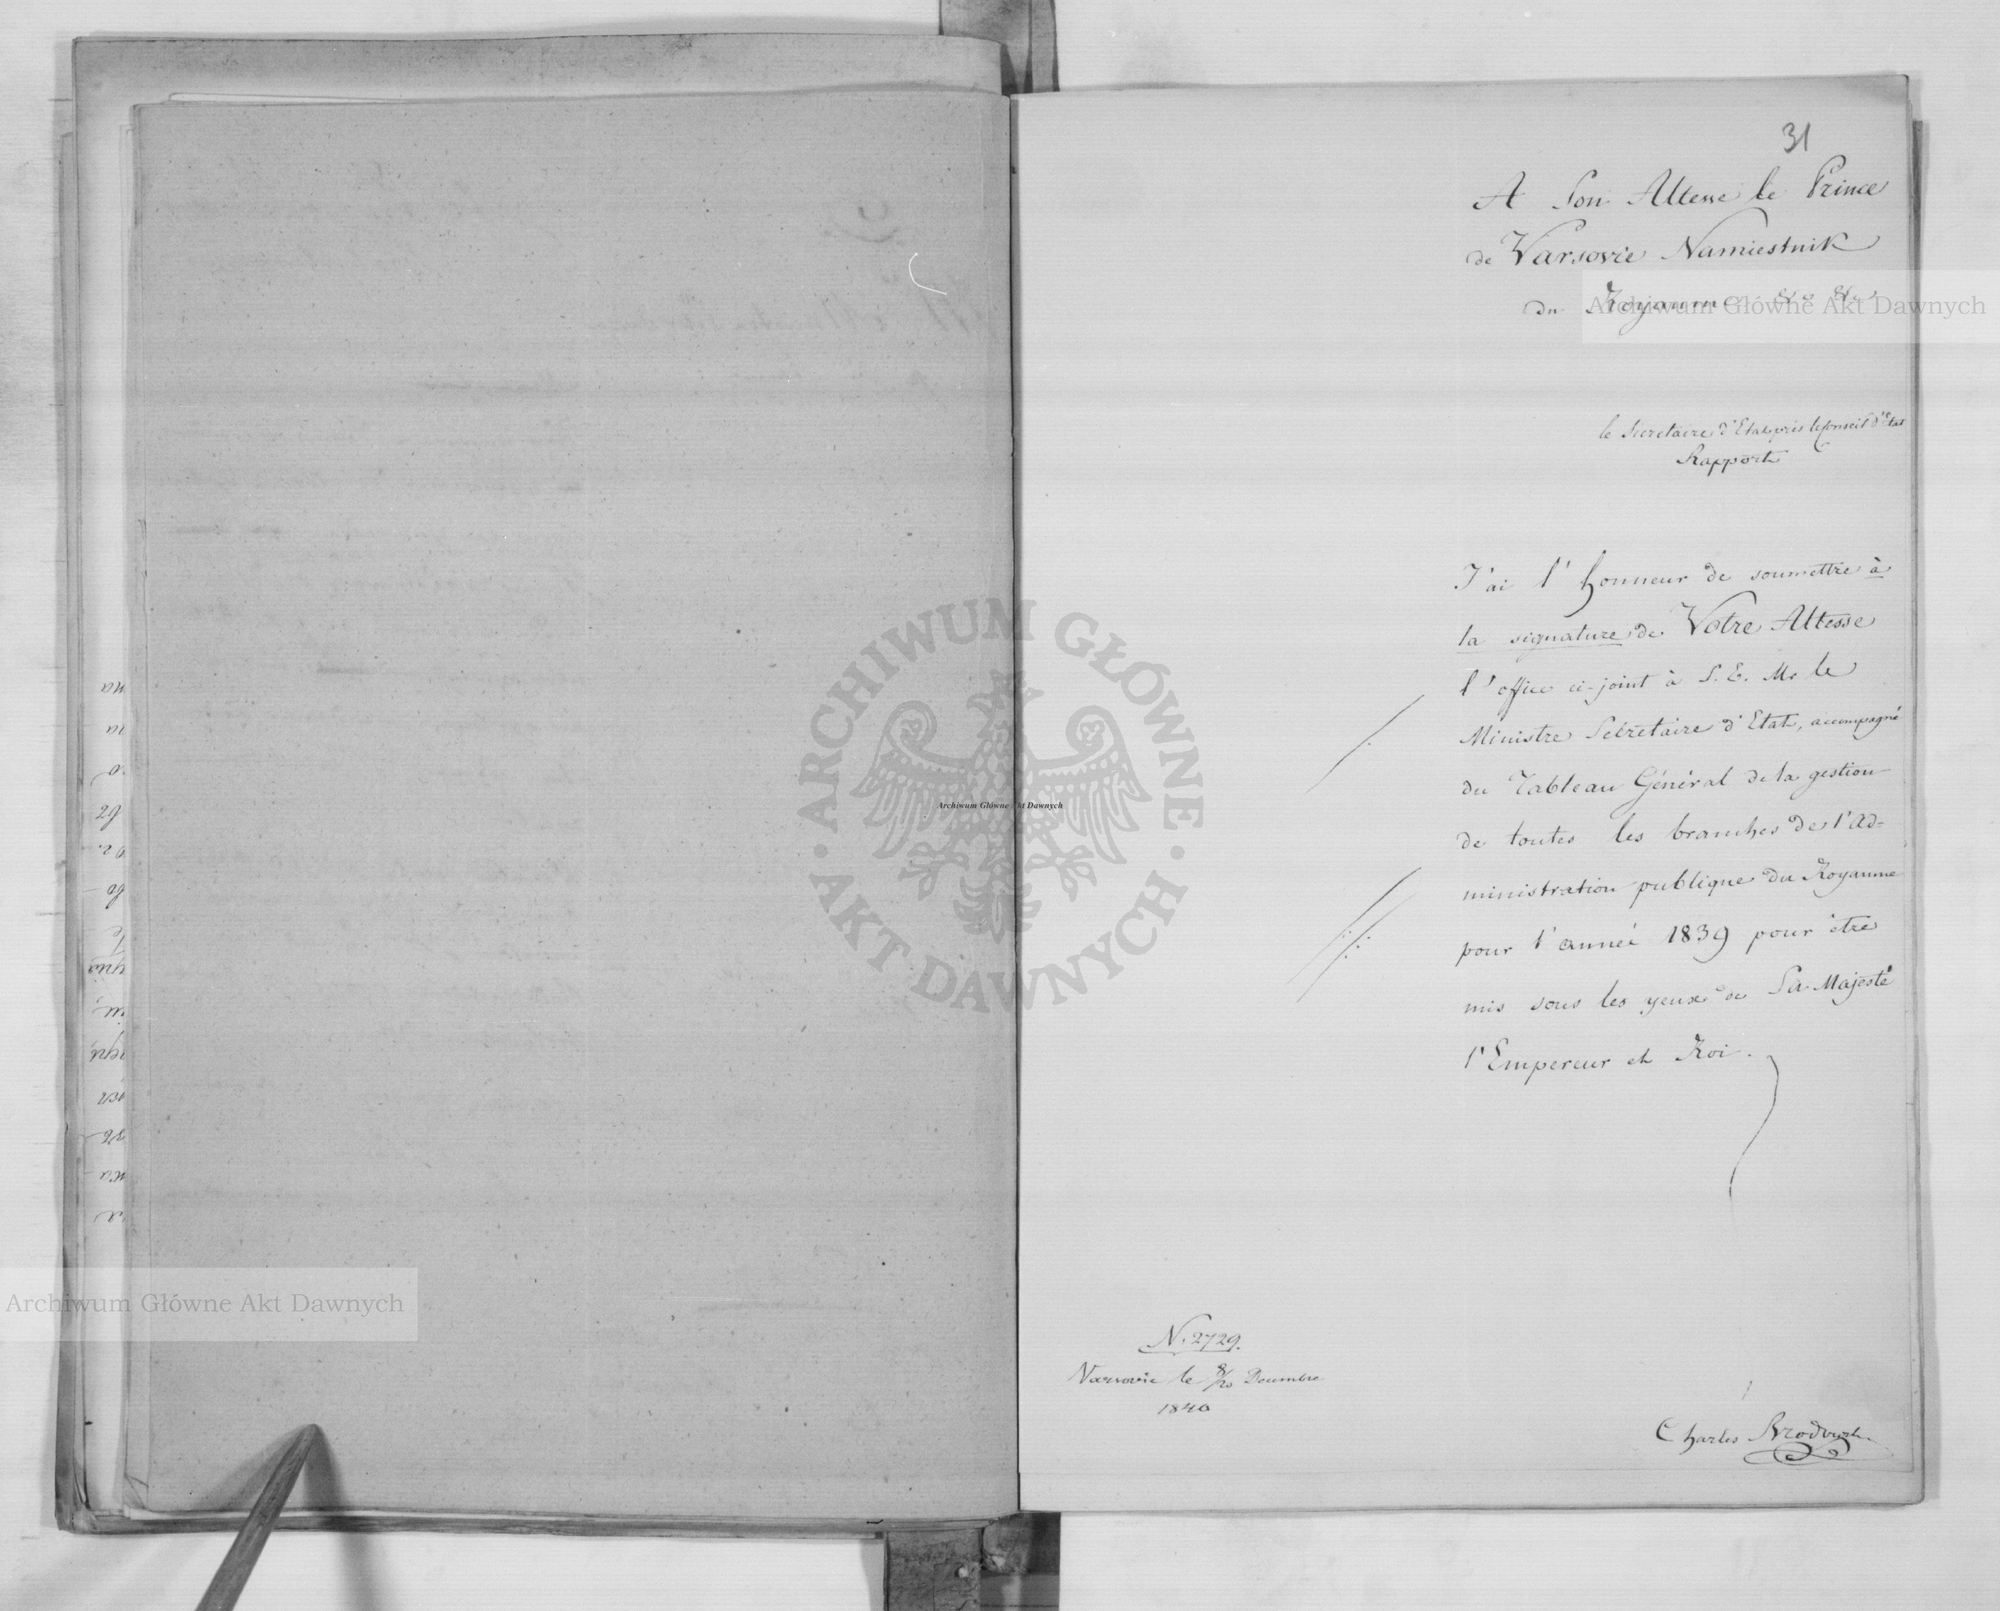 31
A Son Altesse le Prince
de Varsovie Namiestnik
du Royaume &c &c
le Secretaire d'Etat près le Conseil d'Etat
Rapport
J'ai l'honneur de soumettre à
la signature de Votre Altesse
l'office ci-joint à S. E. Mr le
Ministre Secrétaire d'Etat, accompagné
du Tableau Général de la gestion
de toutes les branches de l'Ad=
ministration publique du Royaume
pour l'année 1839 pour être
mis sous les yeux de Sa Majesté
l'Empereur et Roi.
N. 2729.
Varsovie le 8/20 Decembre
1840
Charles
Archiwum Główne Akt Dawnych
ARCHIWUM GŁÓWNE
AKT DAWNYCH
Archiwum Główne Akt Dawnych
Archiwum Główne Akt Dawnych